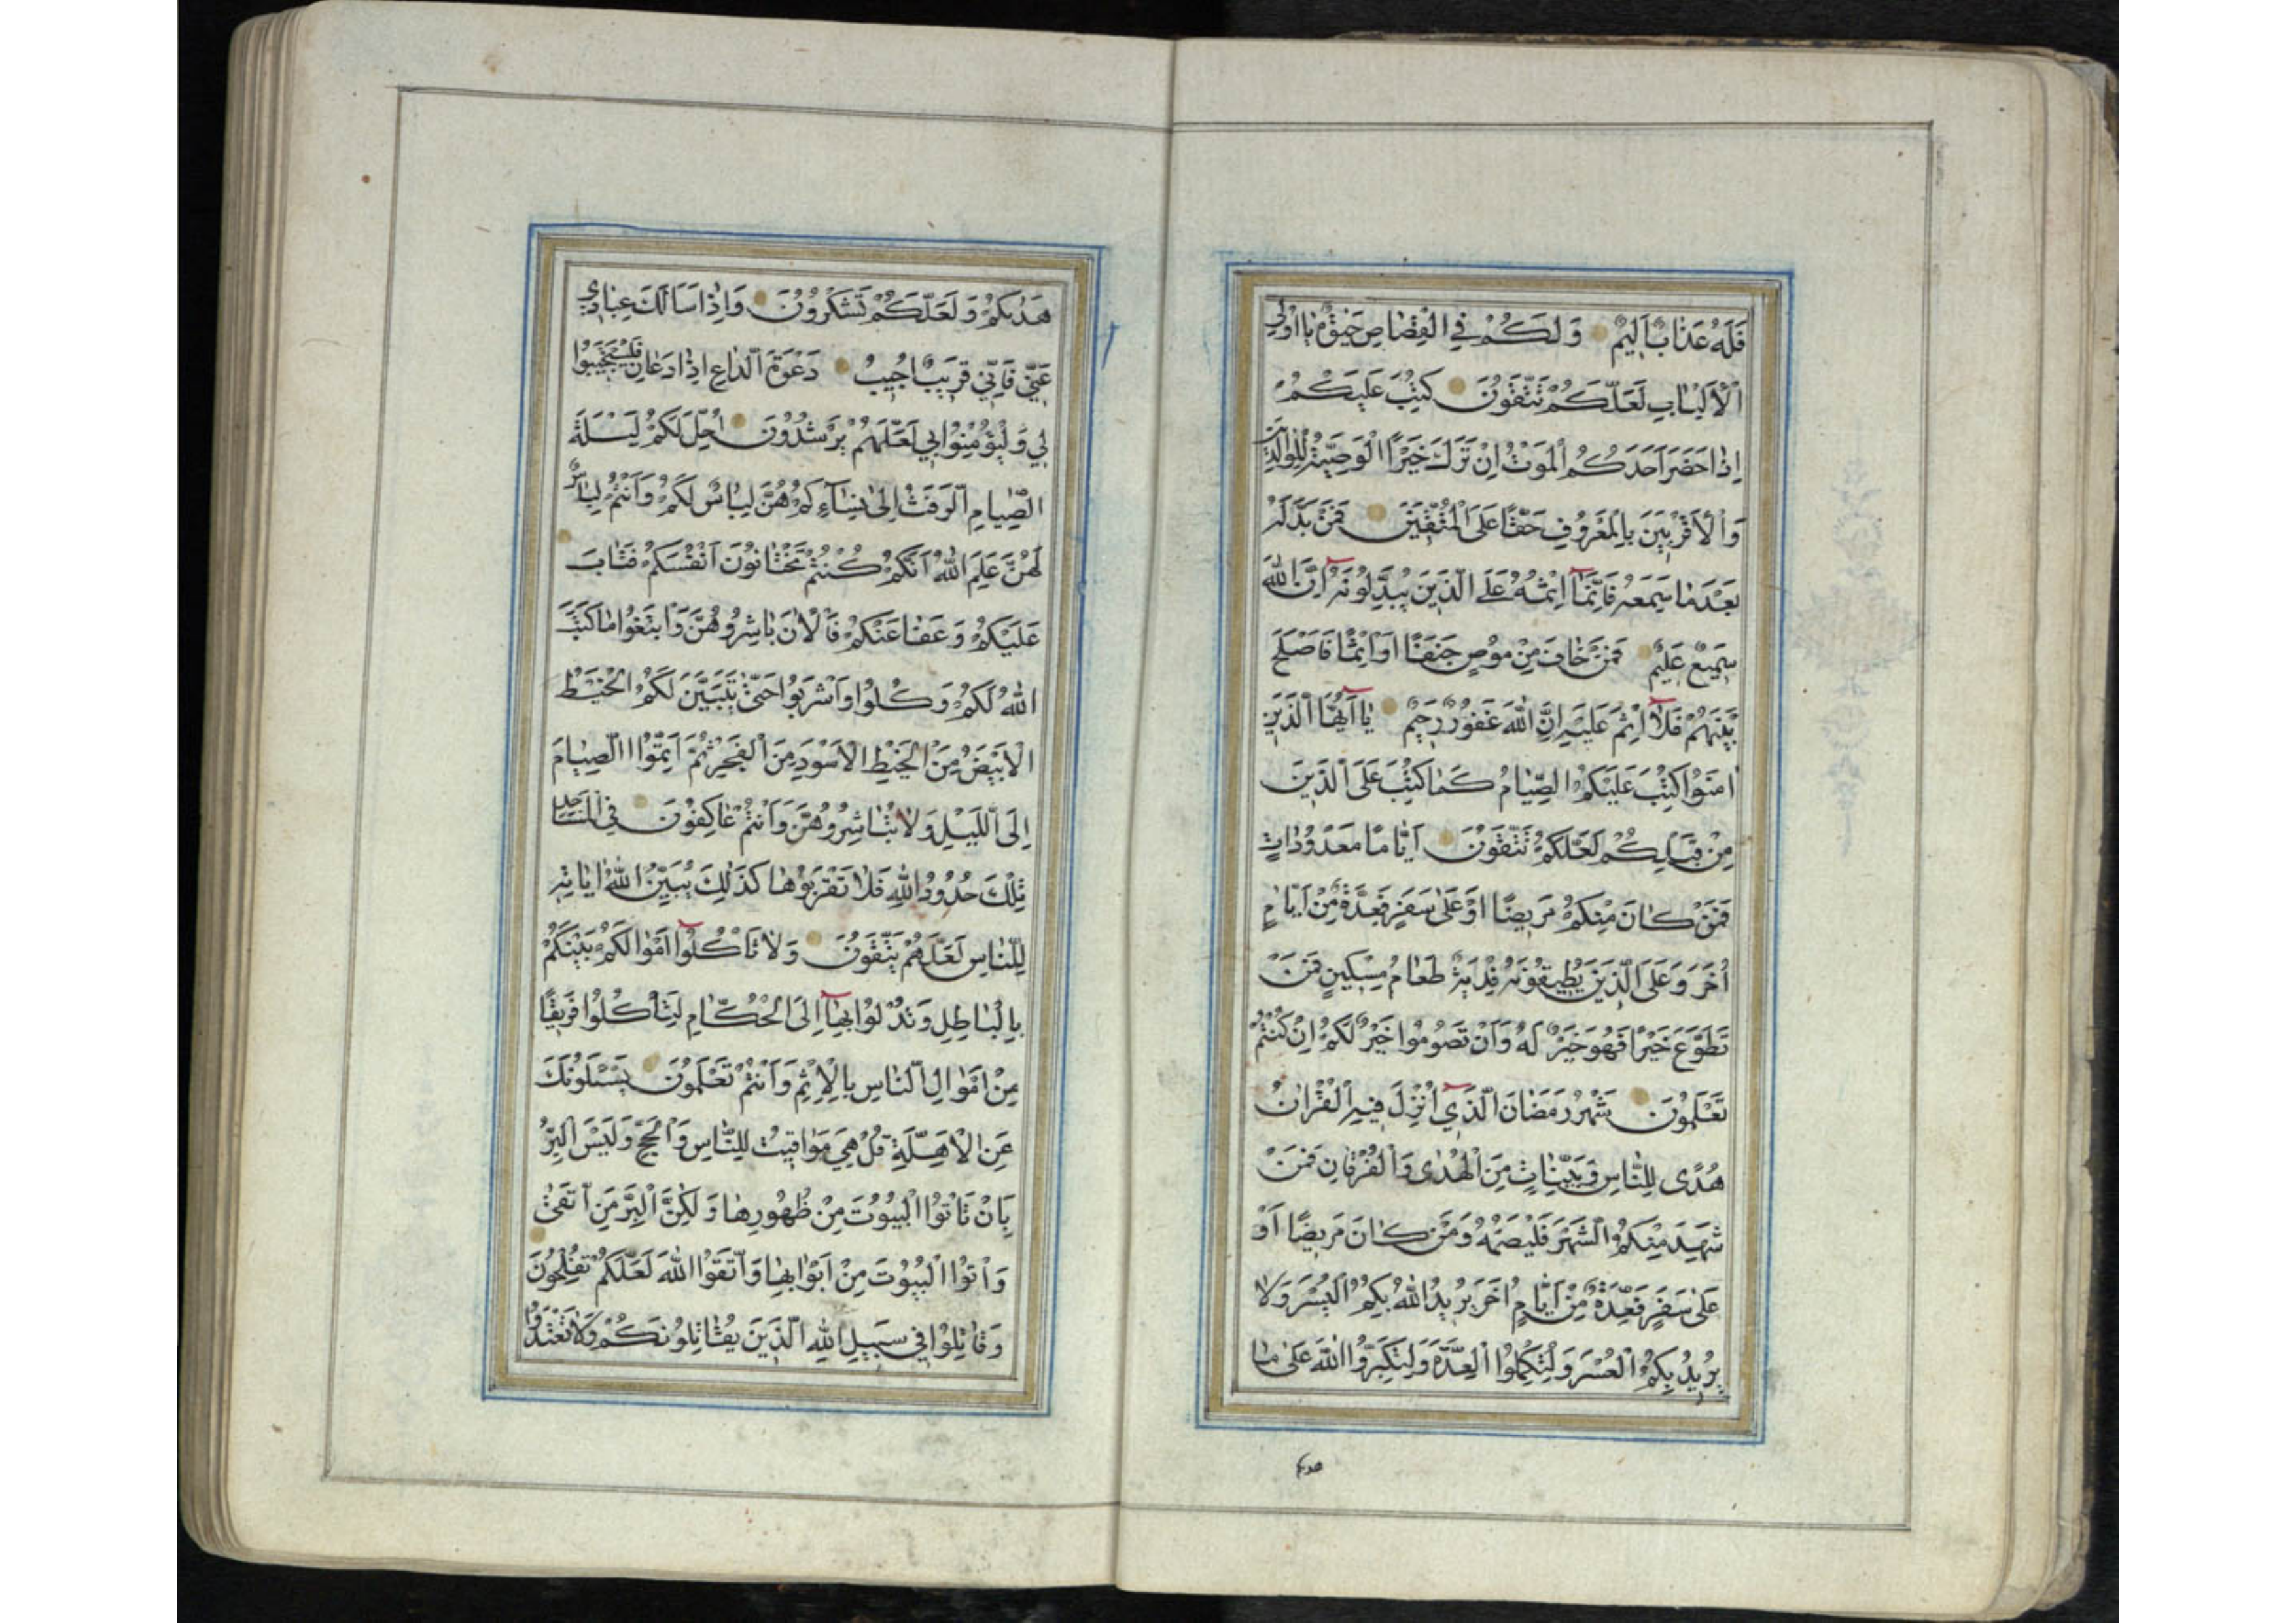 فَلَهُ عَذَابٌ اَلِيمٌ وَلَكُمْ فِي الْقِصَاصِ حَيٰوةٌ يَا اُولِي
الْاَلْبَابِ لَعَلَّكُمْ تَتَّقُونَ كُتِبَ عَلَيْكُمْ
اِذَا حَضَرَ اَحَدَكُمُ الْمَوْتُ اِنْ تَرَكَ خَيْرًا الْوَصِيَّةُ لِلْوَالِدَيْنِ
وَالْاَقْرَبِينَ بِالْمَعْرُوفِ حَقًّا عَلَى الْمُتَّقِينَ فَمَنْ بَدَّلَهُ
بَعْدَ مَا سَمِعَهُ فَاِنَّمَا اِثْمُهُ عَلَى الَّذِينَ يُبَدِّلُونَهُ اِنَّ اللّٰهَ
سَمِيعٌ عَلِيمٌ فَمَنْ خَافَ مِنْ مُوصٍ جَنَفًا اَوْ اِثْمًا فَاَصْلَحَ
بَيْنَهُمْ فَلَا اِثْمَ عَلَيْهِ اِنَّ اللّٰهَ غَفُورٌ رَحِيمٌ يَا اَيُّهَا الَّذِينَ
اٰمَنُوا كُتِبَ عَلَيْكُمُ الصِّيَامُ كَمَا كُتِبَ عَلَى الَّذِينَ
مِنْ قَبْلِكُمْ لَعَلَّكُمْ تَتَّقُونَ اَيَّامًا مَعْدُودَاتٍ
فَمَنْ كَانَ مِنْكُمْ مَرِيضًا اَوْ عَلٰى سَفَرٍ فَعِدَّةٌ مِنْ اَيَّامٍ
اُخَرَ وَعَلَى الَّذِينَ يُطِيقُونَهُ فِدْيَةٌ طَعَامُ مِسْكِينٍ فَمَنْ
تَطَوَّعَ خَيْرًا فَهُوَ خَيْرٌ لَهُ وَاَنْ تَصُومُوا خَيْرٌ لَكُمْ اِنْ كُنْتُمْ
تَعْلَمُونَ شَهْرُ رَمَضَانَ الَّذِي اُنْزِلَ فِيهِ الْقُرْاٰنُ
هُدًى لِلنَّاسِ وَبَيِّنَاتٍ مِنَ الْهُدٰى وَالْفُرْقَانِ فَمَنْ
شَهِدَ مِنْكُمُ الشَّهْرَ فَلْيَصُمْهُ وَمَنْ كَانَ مَرِيضًا اَوْ
عَلٰى سَفَرٍ فَعِدَّةٌ مِنْ اَيَّامٍ اُخَرَ يُرِيدُ اللّٰهُ بِكُمُ الْيُسْرَ وَلَا
يُرِيدُ بِكُمُ الْعُسْرَ وَلِتُكْمِلُوا الْعِدَّةَ وَلِتُكَبِّرُوا اللّٰهَ عَلٰى مَا
هَدٰيكُمْ وَلَعَلَّكُمْ تَشْكُرُونَ وَاِذَا سَاَلَكَ عِبَادِي
عَنِّي فَاِنِّي قَرِيبٌ اُجِيبُ دَعْوَةَ الدَّاعِ اِذَا دَعَانِ فَلْيَسْتَجِيبُوا
لِي وَلْيُؤْمِنُوا بِي لَعَلَّهُمْ يَرْشُدُونَ اُحِلَّ لَكُمْ لَيْلَةَ
الصِّيَامِ الرَّفَثُ اِلٰى نِسَآءِكُمْ هُنَّ لِبَاسٌ لَكُمْ وَاَنْتُمْ لِبَاسٌ
لَهُنَّ عَلِمَ اللّٰهُ اَنَّكُمْ كُنْتُمْ تَخْتَانُونَ اَنْفُسَكُمْ فَتَابَ
عَلَيْكُمْ وَعَفَا عَنْكُمْ فَالْاٰنَ بَاشِرُوهُنَّ وَابْتَغُوا مَا كَتَبَ
اللّٰهُ لَكُمْ وَكُلُوا وَاشْرَبُوا حَتّٰى يَتَبَيَّنَ لَكُمُ الْخَيْطُ
الْاَبْيَضُ مِنَ الْخَيْطِ الْاَسْوَدِ مِنَ الْفَجْرِ ثُمَّ اَتِمُّوا الصِّيَامَ
اِلَى اللَّيْلِ وَلَا تُبَاشِرُوهُنَّ وَاَنْتُمْ عَاكِفُونَ فِي الْمَسَاجِدِ
تِلْكَ حُدُودُ اللّٰهِ فَلَا تَقْرَبُوهَا كَذٰلِكَ يُبَيِّنُ اللّٰهُ اٰيَاتِهِ
لِلنَّاسِ لَعَلَّهُمْ يَتَّقُونَ وَلَا تَاْكُلُوا اَمْوَالَكُمْ بَيْنَكُمْ
بِالْبَاطِلِ وَتُدْلُوا بِهَا اِلَى الْحُكَّامِ لِتَاْكُلُوا فَرِيقًا
مِنْ اَمْوَالِ النَّاسِ بِالْاِثْمِ وَاَنْتُمْ تَعْلَمُونَ يَسْئَلُونَكَ
عَنِ الْاَهِلَّةِ قُلْ هِيَ مَوَاقِيتُ لِلنَّاسِ وَالْحَجِّ وَلَيْسَ الْبِرُّ
بِاَنْ تَاْتُوا الْبُيُوتَ مِنْ ظُهُورِهَا وَلٰكِنَّ الْبِرَّ مَنِ اتَّقٰى
وَاْتُوا الْبُيُوتَ مِنْ اَبْوَابِهَا وَاتَّقُوا اللّٰهَ لَعَلَّكُمْ تُفْلِحُونَ
وَقَاتِلُوا فِي سَبِيلِ اللّٰهِ الَّذِينَ يُقَاتِلُونَكُمْ وَلَا تَعْتَدُوا